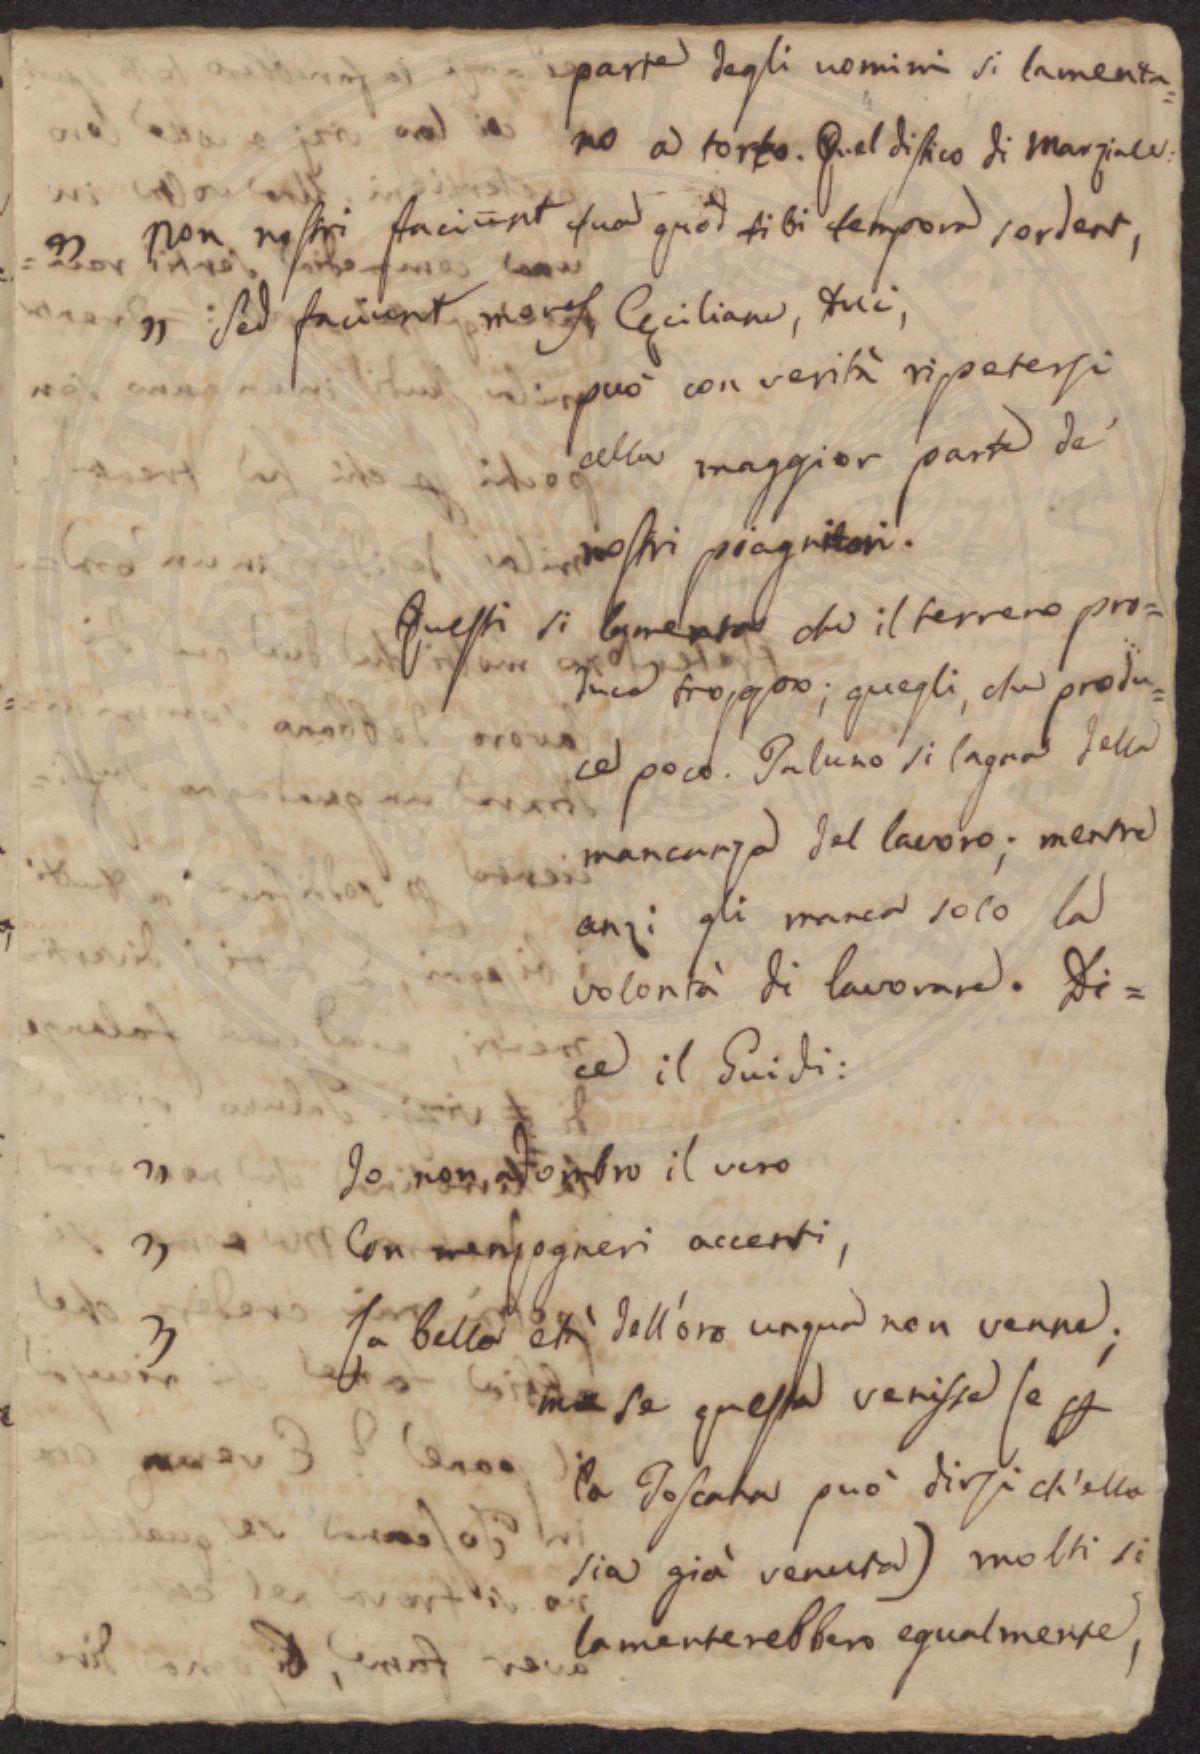 parte degli uomini si lamenta=
no a torto. Quel distico di Marziale:
" Non nostri faciunt tua quòd tibi tempora sordent,
" Sed faciunt mores, Cęciliane, tui,
può con verità ripetersi
alla maggior parte de'
nostri piagnitori.
Questi si lamenta che il terreno pro=
duca troppo; quegli, che produ=
ce poco. Taluno si lagna della
mancanza del lavoro; mentre
anzi gli manca solo la
volontà di lavorare. Di=
ce il Guidi:
" Io non adombro il vero
" Con menzogneri accenti,
" La bella età dell'oro unqua non venne;
ma se questa venisse (e p
la Toscana può dirsi ch'ella
sia già venuta) molti si
lamenterebbero egualmente,